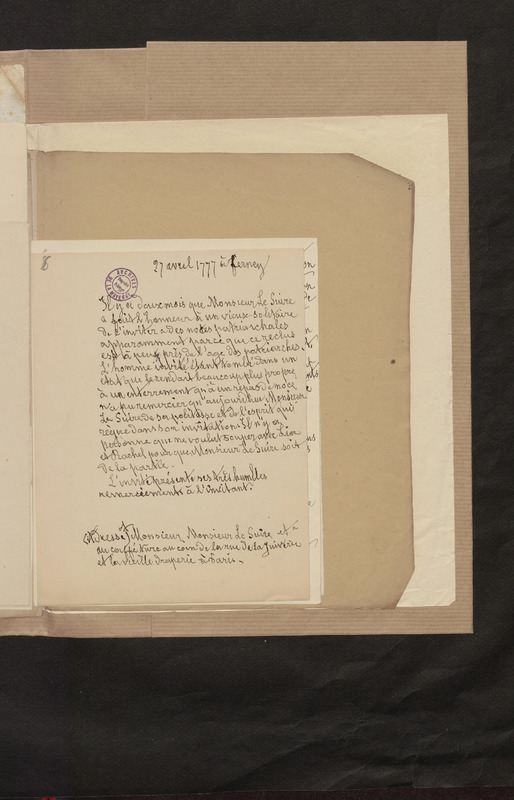 8
27 avril 1777 à ferney
Il y a deux mois que Monsieur Le Suire
a fait l'honneur à un vieux solitaire
de l'inviter a des noces patriarchales
apparamment parce que ce reclus
est à peu près de l'age des patriarches.
L'homme invité étant tombé dans un
état qui le rendait beaucoup plus propre
à un enterrement qu'à un repas de noce
n'a pu remercier qu'aujourdhui Monsieur
Le Suire de sa politesse et de l'esprit qui
règne dans son invitation. Il n'y a
personne qui ne voulut souper avec Lia
et Rachel pourque Monsieur Le Suire soit
de la partie.
L'invité présente ses très humbles
remerciements à l'invitant.
à Monsieur Monsieur Le Suire
au caffé Turc au coin de la rue de la Juiverie
et la vieille draperie à Paris.